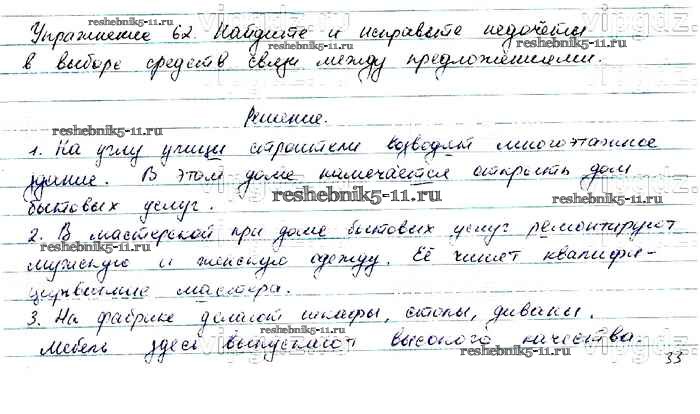 Упражнение 62. Найдите и исправьте недочёты
в выборе средств связи между предложениями.
Решение.
1. На углу улицы строители возводят многоэтажное
здание. В этом доме намечается открыть дом
бытовых услуг.
2. В мастерской при доме бытовых услуг ремонтируют
мужскую и женскую одежду. Её чинят квалифи-
цированные мастера.
3. На фабрике делают шкафы, столы, диваны.
Мебель здесь выпускают высокого качества.
33
reshebnik5-11.ru
reshebnik5-11.ru
reshebnik5-11.ru
reshebnik5-11.ru
reshebnik5-11.ru
reshebnik5-11.ru
reshebnik5-11.ru
vipgdz